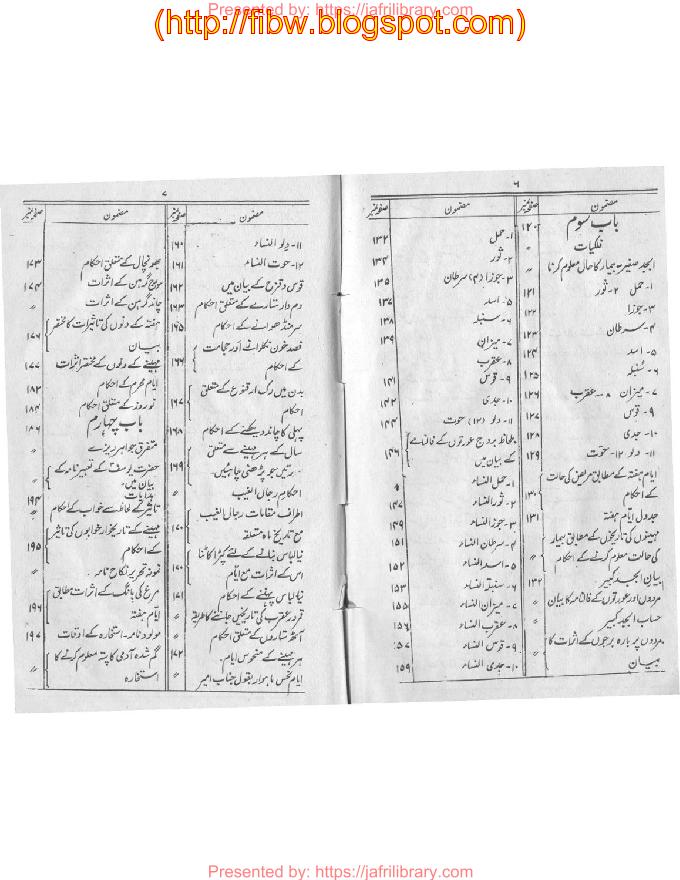 Presented by: https://jafrilibrary.com
(http://fibw.blogspot.com)
۶
مضمون
صفحہ نمبر
مضمون
صفحہ نمبر
باب سوم
۱۲۰
فلکیات
ابجد صغیر سے بیمار کا حال معلوم کرنا
۱- حمل ۲- ثور
۱۲۱
۳- جوزا
۱۲۲
۴- سرطان
۱۲۳
۵- اسد
۱۲۴
۶- سنبلہ
۱۲۵
۷- میزان ۸- عقرب
۱۲۶
۹- قوس
۱۲۷
۱۰- جدی
۱۲۸
۱۱- دلو ۱۲- حوت
۱۲۹
ایام ہفتہ کے مطابق مریض کی حالت
کے احکام
۱۳۰
جدول ایام ہفتہ
۱۳۱
مہینوں کی تاریخوں کے مطابق بیمار
کی حالت معلوم کرنے کے احکام
〃
بیان ابجد کبیر
۱۳۲
مردوں اور عورتوں کے فالنامہ کا بیان
〃
حساب ابجد کبیر
〃
مردوں پر بارہ برجوں کے اثرات کا
بیان
〃
۱- حمل
۱۳۲
۲- ثور
۱۳۴
۳- جوزا (۴) سرطان
۱۳۵
۵- اسد
۱۳۷
۶- سنبلہ
۱۳۸
۷- میزان
۱۳۹
۸- عقرب
۹- قوس
۱۴۱
۱۰- جدی
۱۴۲
۱۱- دلو (۱۲) حوت
۱۴۴
بلحاظ بروج عورتوں کے فالنامے
کے بیان میں
۱۴۶
۱- حمل النساء
۲- ثور النساء
۱۴۷
۳- جوزا النساء
۱۴۹
۴- سرطان النساء
۱۵۱
۵- اسد النساء
۱۵۲
۶- سنبلہ النساء
۱۵۳
۷- میزان النساء
۱۵۵
۸- عقرب النساء
۱۵۶
۹- قوس النساء
۱۵۷
۱۰- جدی النساء
۱۵۹
۷
مضمون
صفحہ نمبر
مضمون
صفحہ نمبر
۱۱- دلو النساء
۱۶۰
۱۲- حوت النساء
۱۶۱
قوس و قزح کے بیان میں
۱۶۲
دم دار ستارے کے متعلق احکام
۱۶۳
سرمنڈھوانے کے احکام
۱۶۵
فصد خون نکلوانے اور حجامت
کے احکام
۱۶۶
بدن میں رگ اور قزع کے متعلق
احکام
۱۶۷
پہلی کا چاند دیکھنے کے احکام
۱۶۸
سال کے ہر مہینے سے متعلق
سورتیں جو پڑھنی چاہئیں۔
۱۶۹
احکام رجال الغیب
〃
اطراف مقامات رجال الغیب
مع تاریخ ماہ متعلقہ
۱۷۰
نیا لباس بنانے کے لئے کپڑا کاٹنا
اس کے اثرات مع ایام
۱۷۰
نیا لباس پہننے کے احکام
۱۷۱
قمر در عقرب کی تاریخیں جاننے کا طریقہ
〃
آٹھ ستاروں کے متعلق احکام
〃
ہر مہینے کے منحوس ایام۔
۱۷۲
ایام نحس ماہوار بقول جناب امیر
〃
بھونچال کے متعلق احکام
۱۷۳
سورج گرہن کے اثرات
۱۷۴
چاند گرہن کے اثرات
〃
ہفتہ کے دنوں کی تاثیرات کا مختصر
بیان
۱۷۶
مہینے کے دنوں کے مختصر اثرات
۱۷۷
ایام محرم کے احکام
۱۸۲
نوروز کے متعلق احکام
۱۸۴
باب چہارم
۱۸۶
متفرق جواہر ریزے
〃
حضرت یوسف کے تعبیر نامہ کے
بیان میں
〃
ہدایات
۱۹۴
تاثیر کے لحاظ سے خواب کے احکام
〃
مہینے کے تاریخوار خوابوں کی تاثیر
کے احکام
۱۹۵
نمونہ تحریر نکاح نامہ
〃
مرغ کی بانگ کے اثرات مطابق
ایام ہفتہ
۱۹۶
مولود نامہ۔ استخارہ کے اوقات
۱۹۷
گم شدہ آدمی کا پتہ معلوم کرنے کا
استخارہ
〃
Presented by: https://jafrilibrary.com